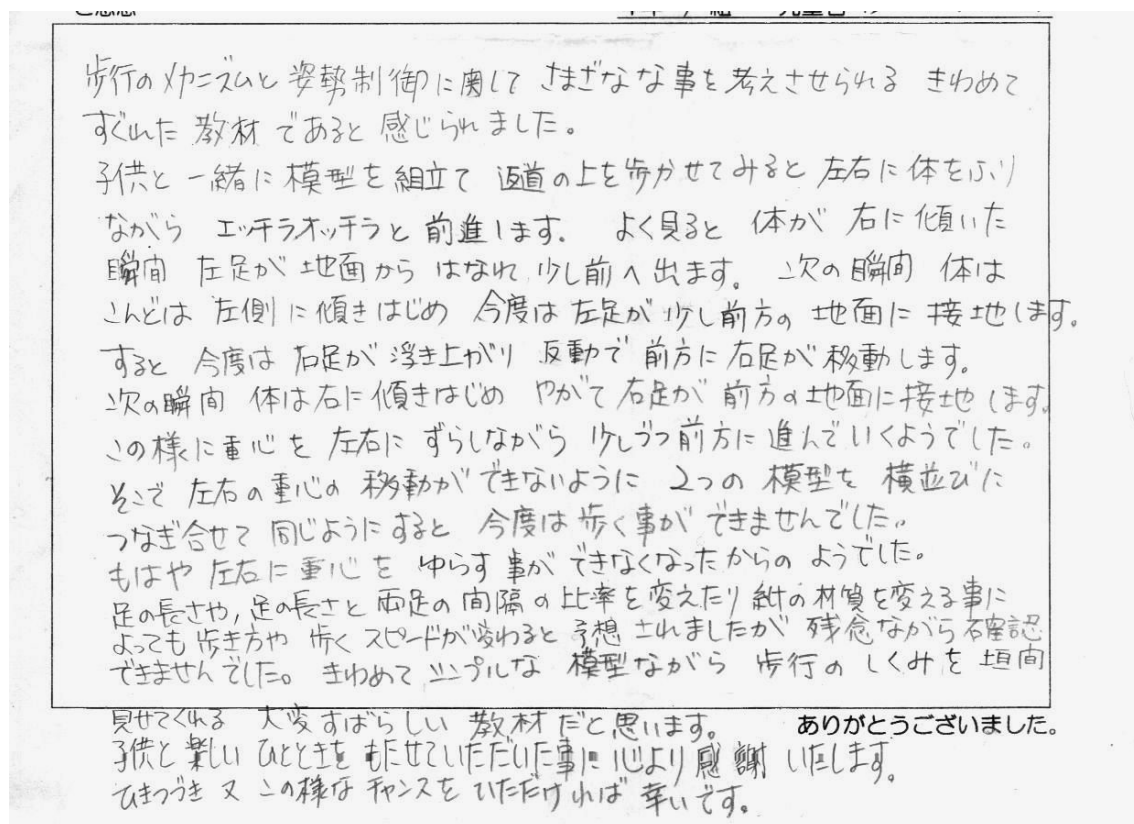 歩行のメカニズムと姿勢制御に関して さまざなな事を考えさせられる きわめて
すぐれた 教材 であると 感じられました。
子供と 一緒に 模型を 組立て 返道の上を歩かせてみると 左右に体をふり
ながら エッチラオッチラと 前進します。 よく見ると 体が 右に傾いた
瞬間 左足が 地面から はなれ 少し前へ 出ます。 次の瞬間 体は
こんどは 左側に傾きはじめ 今度は 左足が 少し前方の 地面に接地します。
すると 今度は 右足が 浮き上がり 反動で 前方に 右足が 移動します。
次の瞬間 体は右に傾きはじめ やがて右足が 前方の地面に接地します。
この様に重心を 左右に ずらしながら 少しづつ前方に進んでいくようでした。
そこで 左右の重心の 移動ができないように 2つの 模型を 横並びに
つなぎ合せて 同じようにすると 今度は歩く事が できませんでした。
もはや 左右に重心を ゆらす事ができなくなったからの ようでした。
足の長さや,足の長さと 両足の間隔の比率を変えたり 紙の材質を変える事に
よっても歩き方や 歩くスピードが変わると 予想されましたが 残念ながら確認
できませんでした。 きわめてシンプルな 模型ながら 歩行のしくみを 垣間
見せてくれる 大変すばらしい 教材だと思います。 ありがとうございました。
子供と楽しい ひとときを もたせていただいた事に 心より感謝 いたします。
ひきつづき 又 この様な チャンスを いただければ 幸いです。